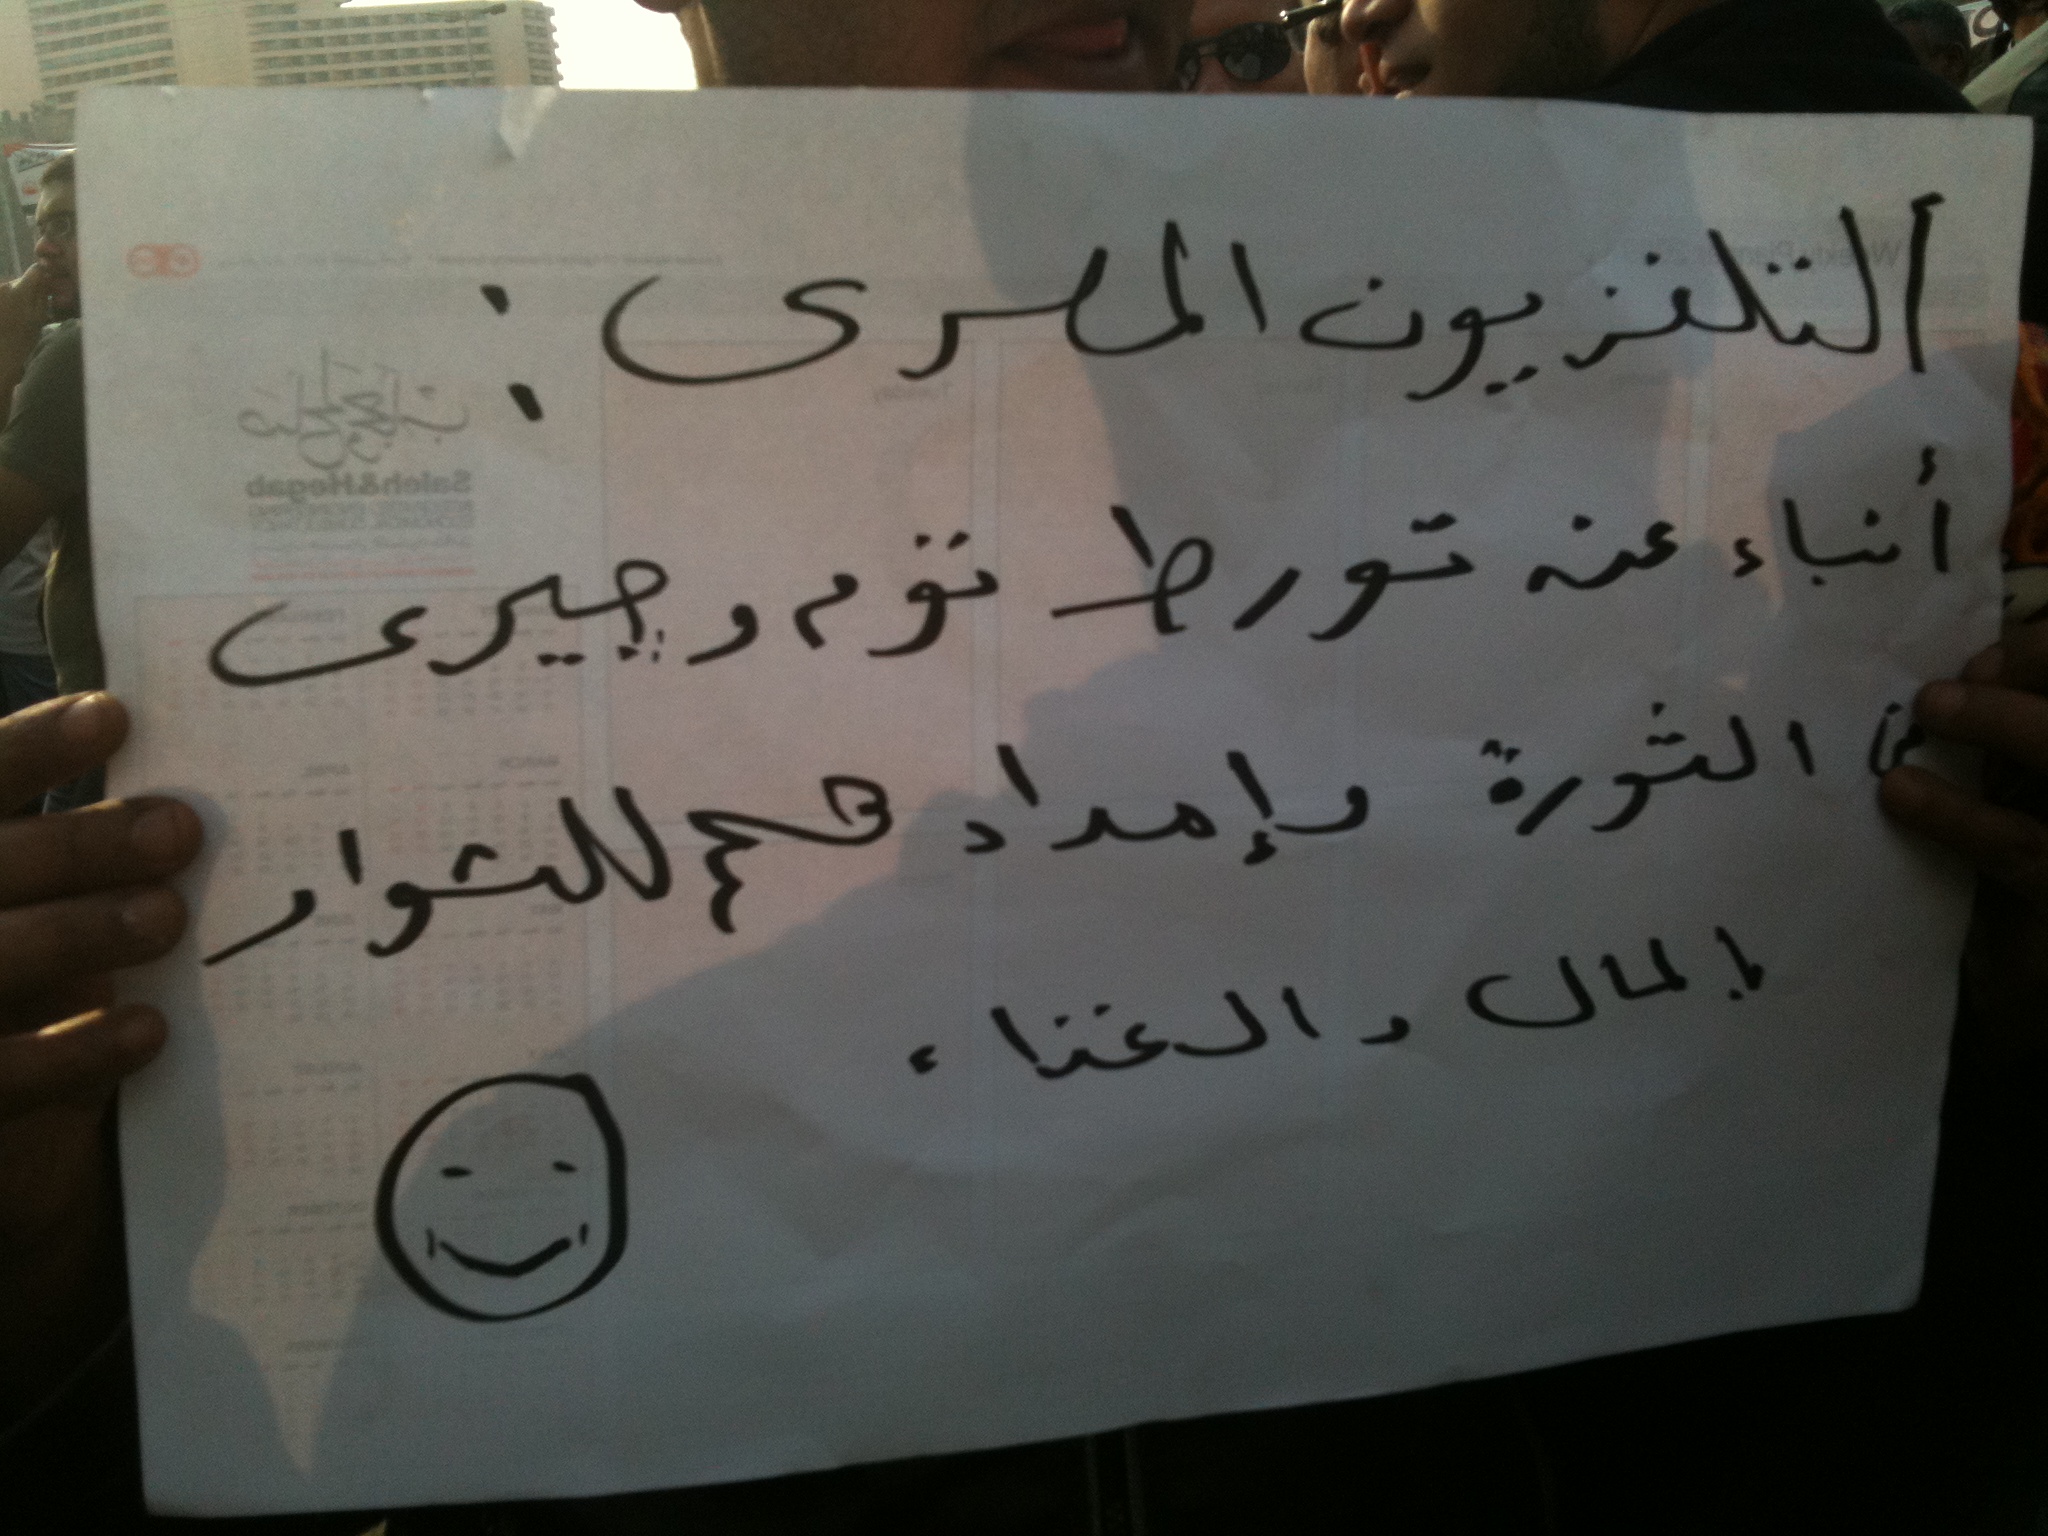 التلفزيون المصرى :
أنباء عن تورط توم وجيرى
فى الثورة وإمدادهم للثوار
بالمال والغذاء
Saleh&Hegab